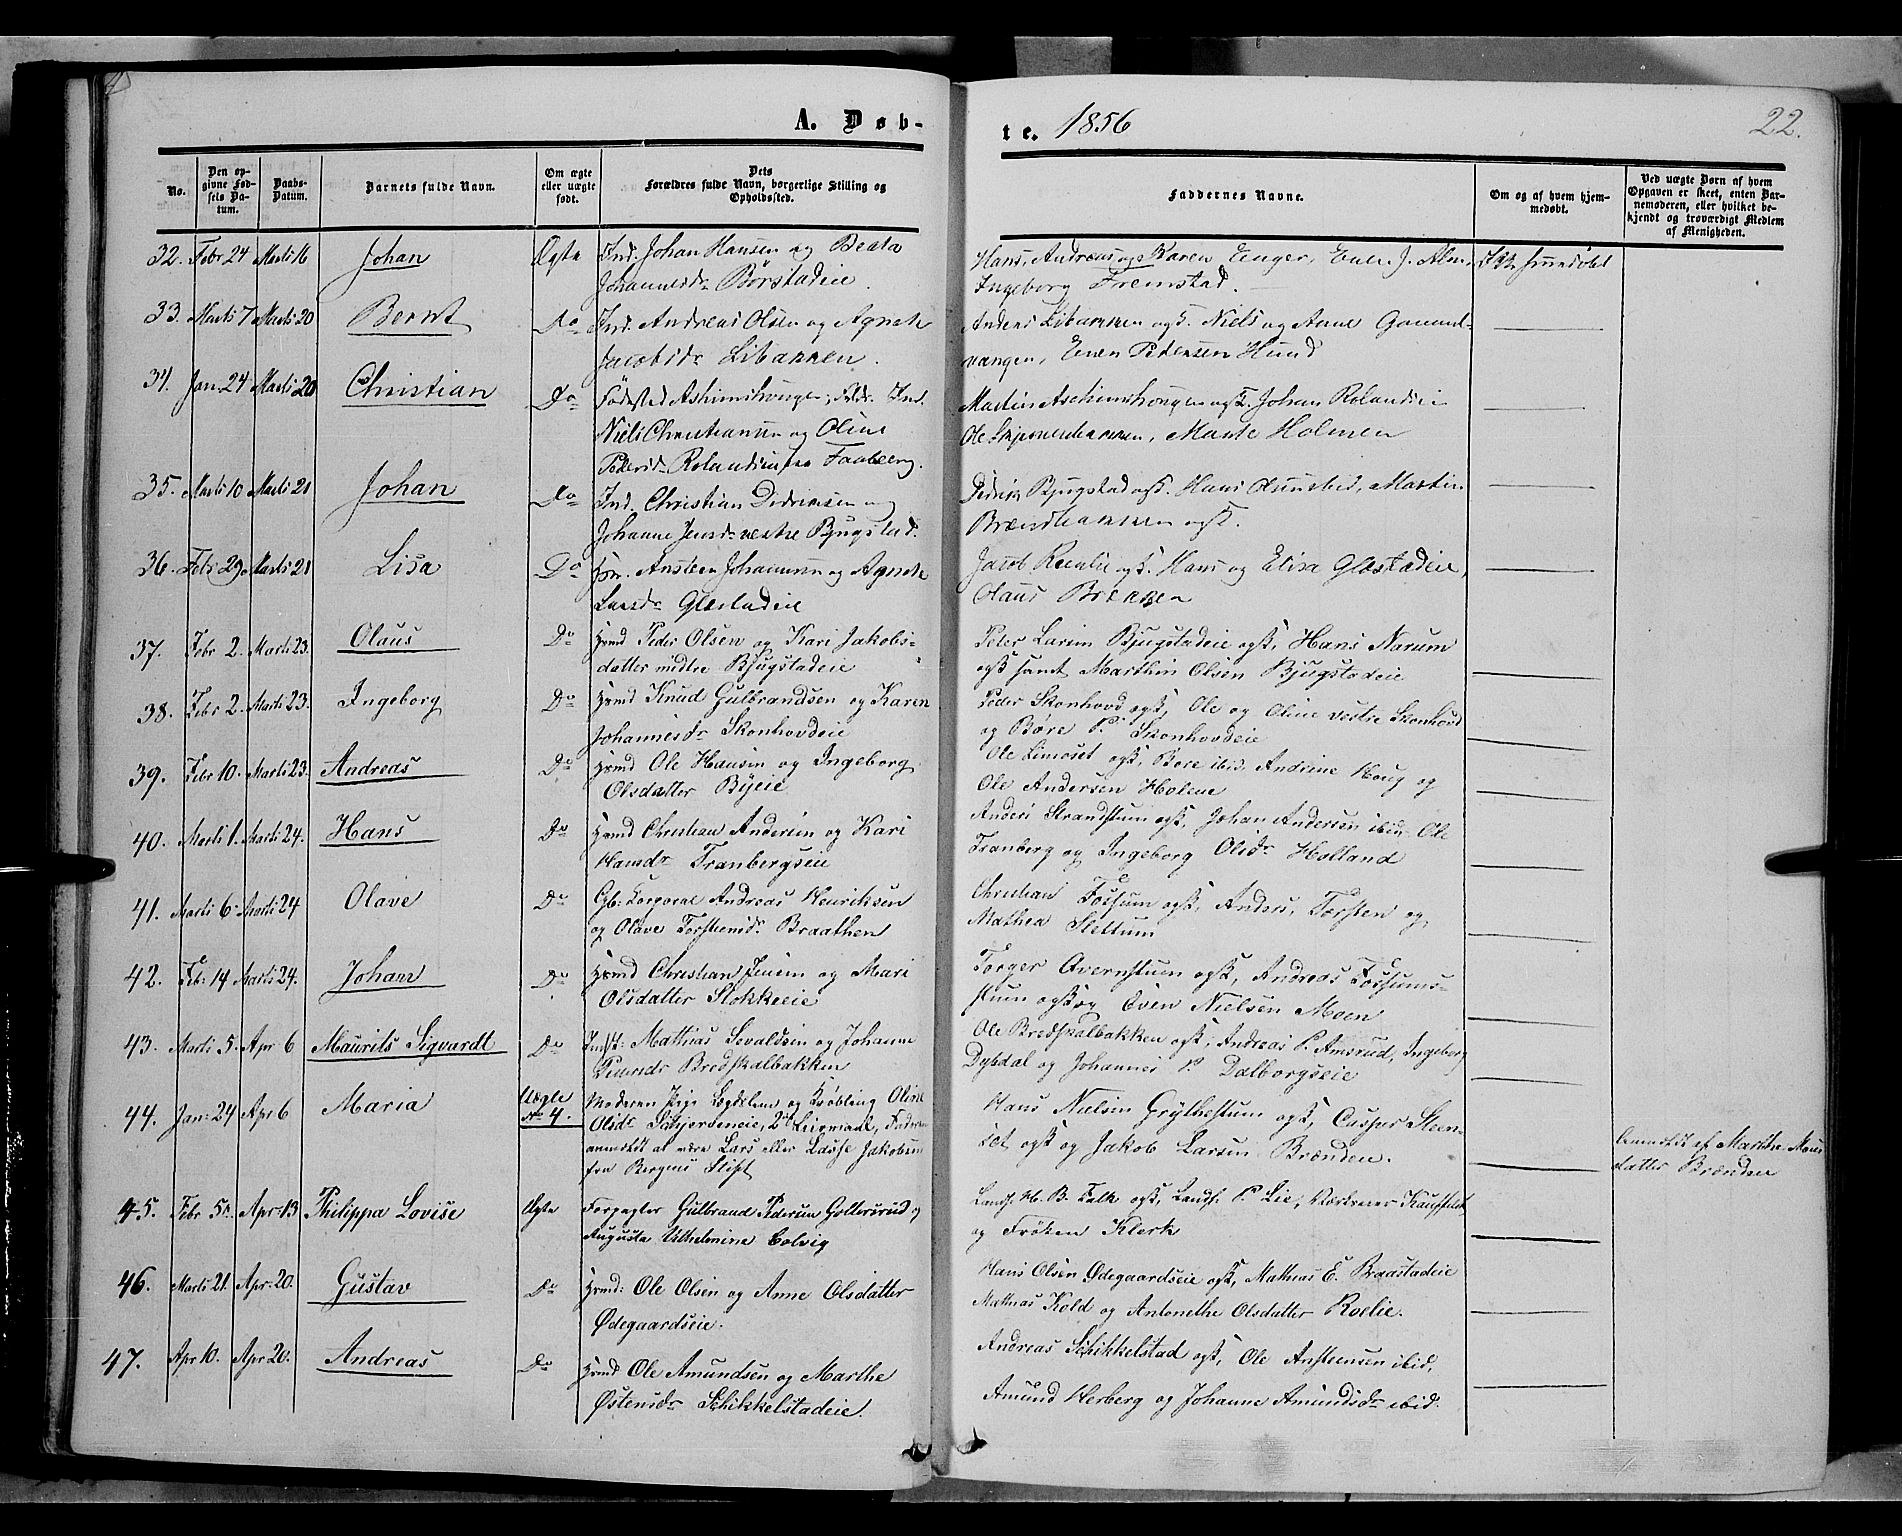 A. Døb-
te. 1856
22.
No.
Den opgivne Fødsels Datum.
Daabs-Datum.
Barnets fulde Navn.
Om ægte eller uægte født.
Dets Forældres fulde Navn, borgerlige Stilling og Opholdssted.
Faddernes Navne.
Om og af hvem hjemmedøbt.
Ved uægte Børn af hvem Opgaven er skeet, enten Barnemoderen, eller hvilket bekjendt og troværdigt Medlem af Menigheden.
32. Febr 24 Marti 16 Johan Ægte Ind. Johan Hansen og Beata
Johannesdr Børstadeie.
Hans, Andreas og Karen Enger, Even J. Alm,
Ingeborg Fremstad.
33. Marti 7 Marti 20 Bernt Do Ind. Andreas Olsen og Agnete
Jacobsdr Libakken.
Anders Libakken ogk. Niels og Anne
vangen, Even Pedersen Hund
34. Jan. 24 Marti 20 Christian Do Fødested Ashimshougen; Fldr. Ind.
Niels Christiansen og Oline
Pedersdr Rolandseie fra Faaberg.
Martin Aschimshougen ogk. Johan Rolandseie
Ole Skjønsbakken, Marte Holmen
35. Marti 10 Marti 21 Johan Do Ind. Christian Didriksen og
Johanne Jensdr vestre Bjugstad.
Didrik Bjugstad ogk. Hans Martin
Brændbakken ogk.
36. Febr 29 Marti 21 Lisa Do Hsm. Ansteen Johannesen og Agnete
Larsdr Glæstadeie
Jacob Roelie ogk. Hans og Elisa Glæstadeie,
Olaus Brækken
37. Febr 2. Marti 23. Olaus Do Hsmd Peder Olsen og Kari Jakobs-
datter midtre Bjugstadeie
Peter Larsen Bjugstadeie ogk, Hans Narum
ogk samt Marthin Olsen Bjugstadeie
38. Febr 2. Marti 23. Ingeborg Do Hsmd Knud Gulbrandsen og Karen
Johannesdr Skonhovdeie
Peder Skonhovd ogk, Ole og Oline vestre Skonhovd
og Børe P. Skonhovdeie
39. Febr 10. Marti 23. Andreas Do Hsmd Ole Hansen og Ingeborg
Olsdatter Byeie
Ole Limoset ogk, Bore ibid, Andrine Houg og
Ole Andersen Holene
40. Marti 1. Marti 24. Hans Do Hsmd Christian Andersen og Kari
Hansdr Tranbergseie
Anders Strandstuen ogk, Johan Andersen ibid, Ole
Tranberg og Ingeborg Olsdr Holland
41. Marti 6. Marti 24 Olave Do Gb: Korporal Andreas Henriksen
og Olave Torstensdr Braathen
Christian Fossum ogk, Anders, Torsten og
Mathea Slettum
42. Feb: 14 Marti 24. Johan Do Hsmd Christian Jensen og Mari
Olsdatter Stokkeeie
Torger Avernstuen ogk, Andreas Fossums-
stuen ogk og Even Nielsen Moen
43. Marti 5. Apr 6 Maurits Sigvardt Do Indst: Mathias Sevaldsen og Johanne
Bredskalbakken
Ole Bredskalbakken ogk, Andreas P. Amsrud, Ingeborg
Dysdal og Johannes P. Dalborgseie
44. Jan: 24 Apr 6 Maria Uægte No 4. Moderen Pige Lægdslem og Krøbling Oline
Olsdr Schjerdeneie, 2det Leiermaal, Faderen
anmeldt at være Lars eller Lasse Jakobsen
fra Bergens Stift
Hans Nielsen Grythestuen ogk, Casper Steen-
set ogk og Jakob Larsen Brenden.
Anmeldt af Marthe Mons
datter Brænden
45. Febr 5. Apr. 13 Philippa Lovise Ægte Forpagter Gulbrand Pedersen Gottersrud og
Augusta Vilhelmine Colvig
Landh. H. B. Falk ogk, Landh. P. Lie,
og Frøken Klerk
46. Marti 21. Apr. 20. Gustav Do Hsmd: Ole Olsen og Anne Olsdatter
Ødegaardseie.
Hans Olsen Ødegaardseie ogk, Mathias E. Braastadeie
Mathias Kold og Antonethe Olsdatter Roelie.
47. Apr 10. Apr 20. Andreas Do Hsmd Ole Amundsen og Marthe
Østensdr Schikkelstadeie.
Andreas Schikkelstad ogk, Ole Ansteensen ibid,
Amund Herberg og Johanne Amundsdr ibid.